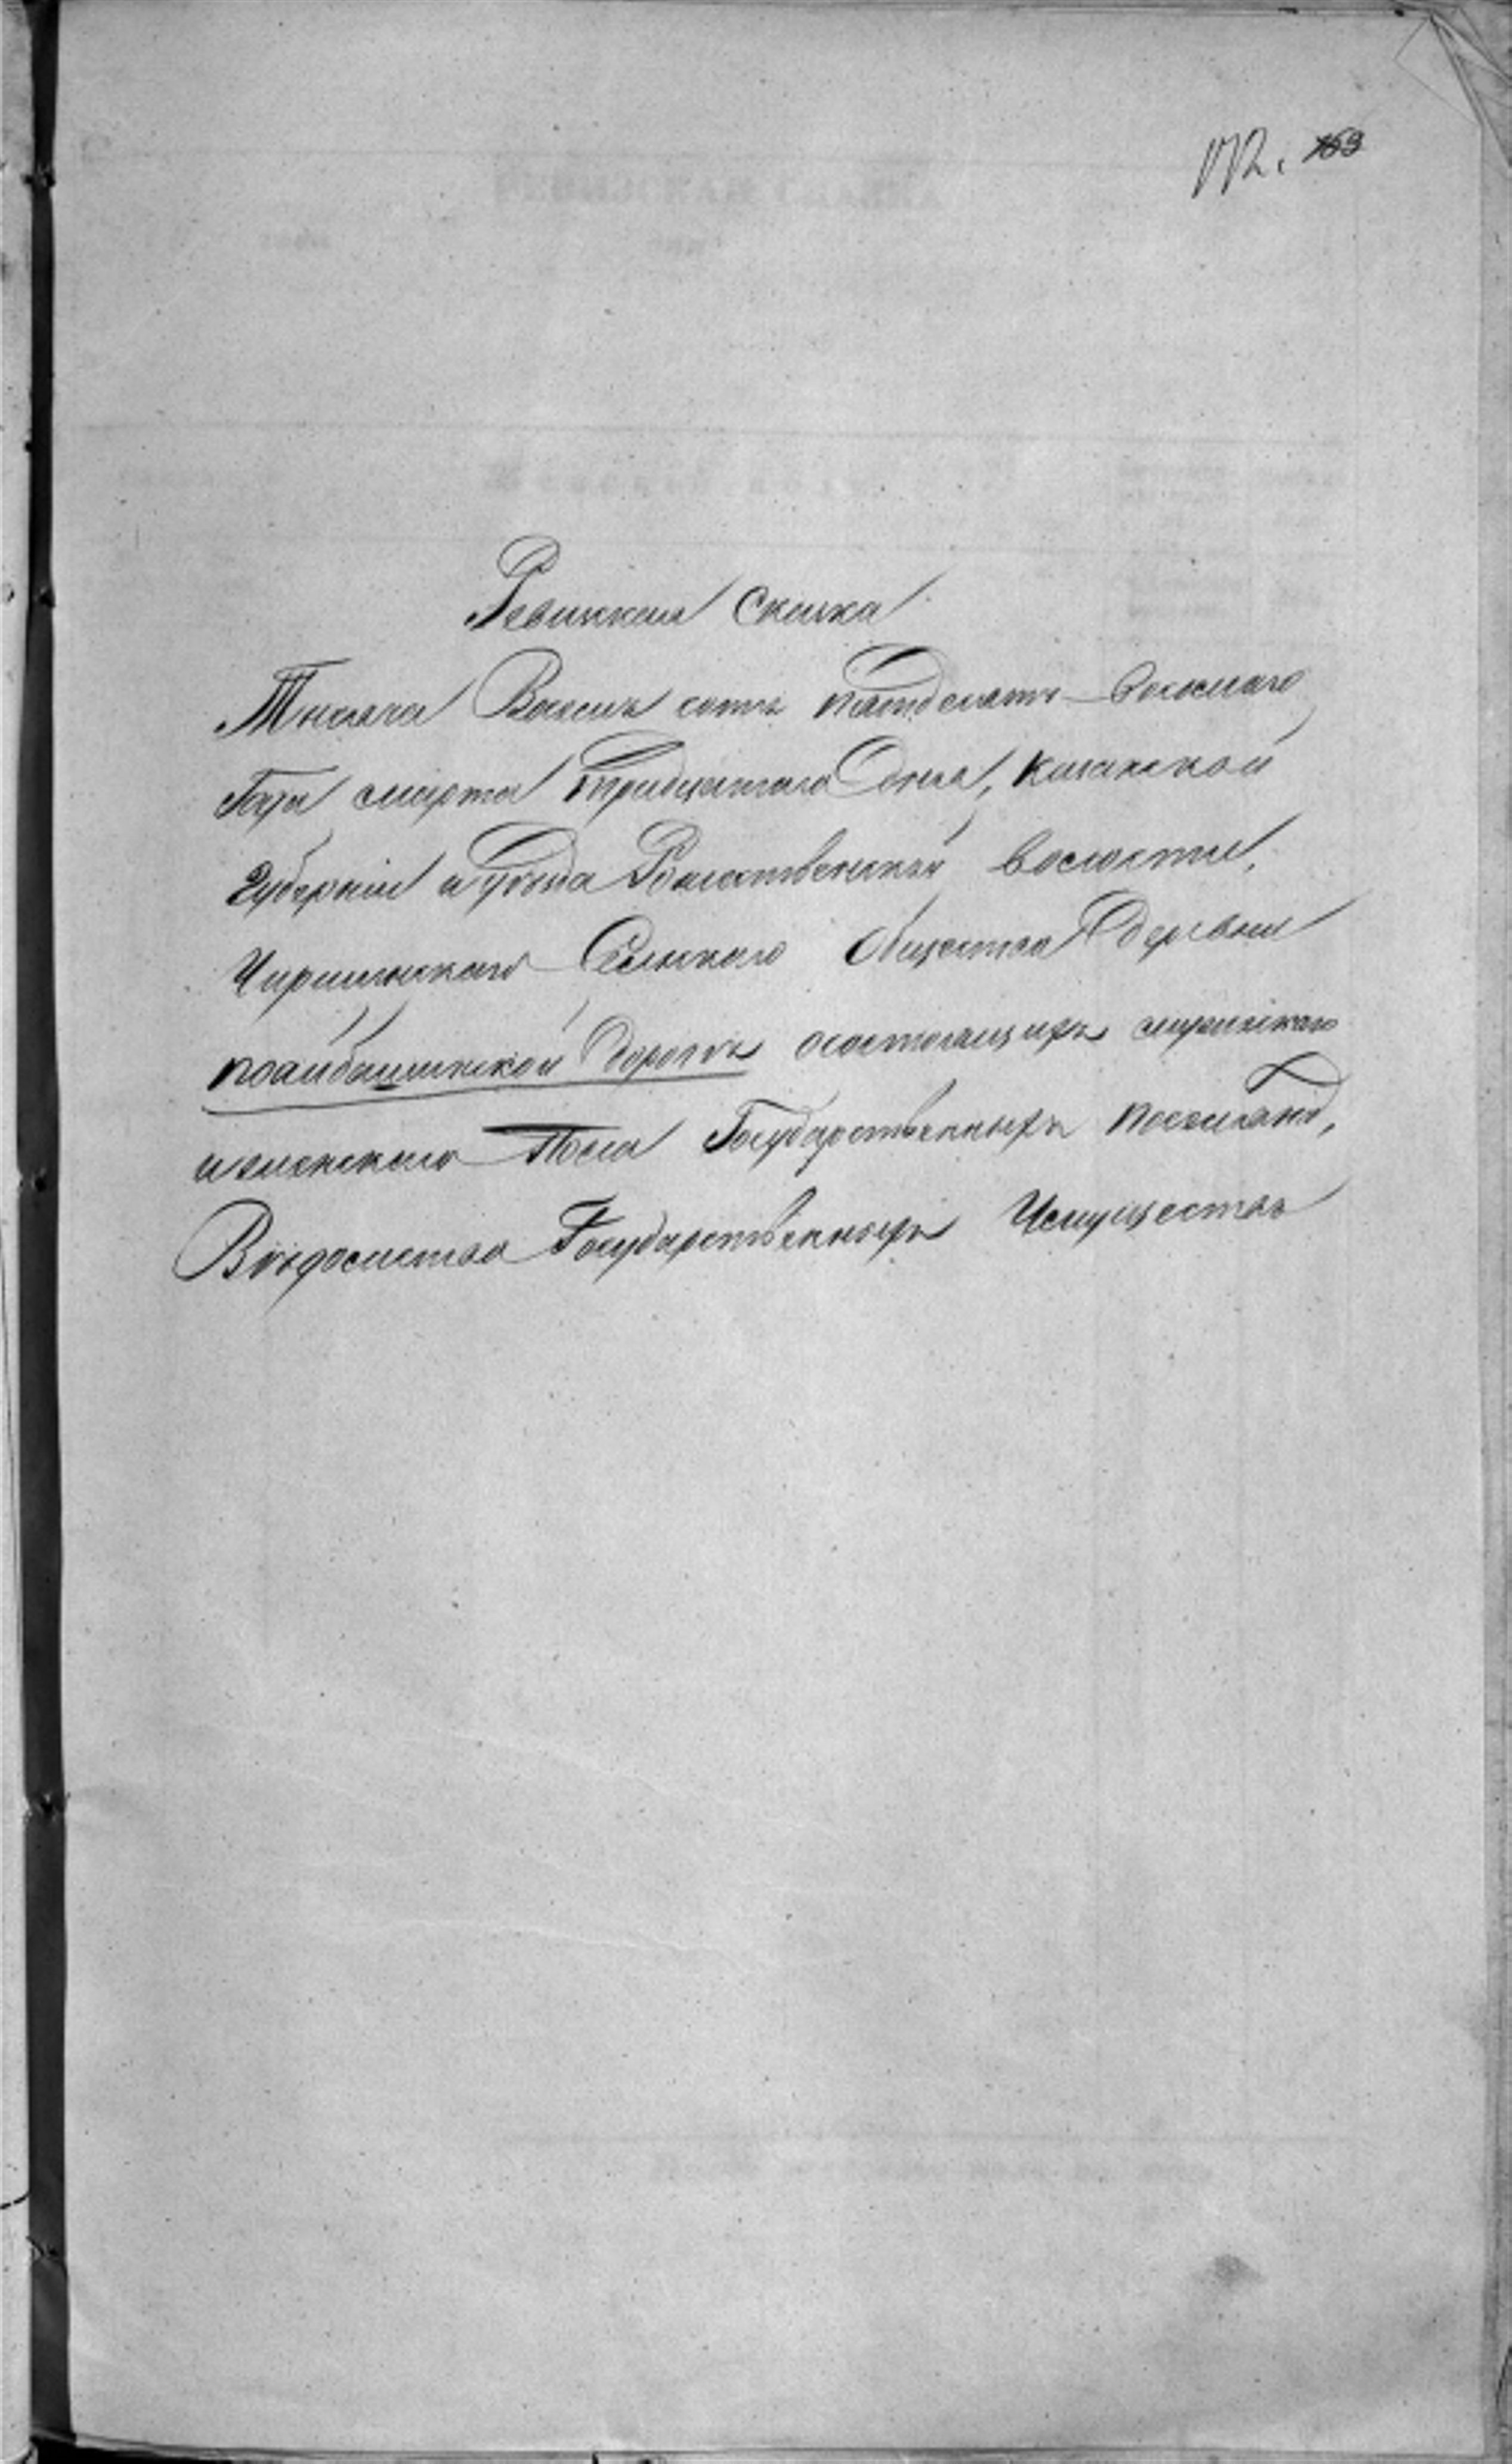 172. 169
Ревизская Сказка
Тысяча Восемь сотъ пятдесятъ Восьмаго
Года марта тридцатаго Дня, Казанской
Губерніи и уѣзда Рождественской Волости,
Чиршинскаго Сельскаго Общества Деревни
поайбашинской дорогѣ осостоящихъ мужескаго
и женскаго Пола Государственныхъ поселянъ,
Вѣдомства Государственныхъ Имуществъ